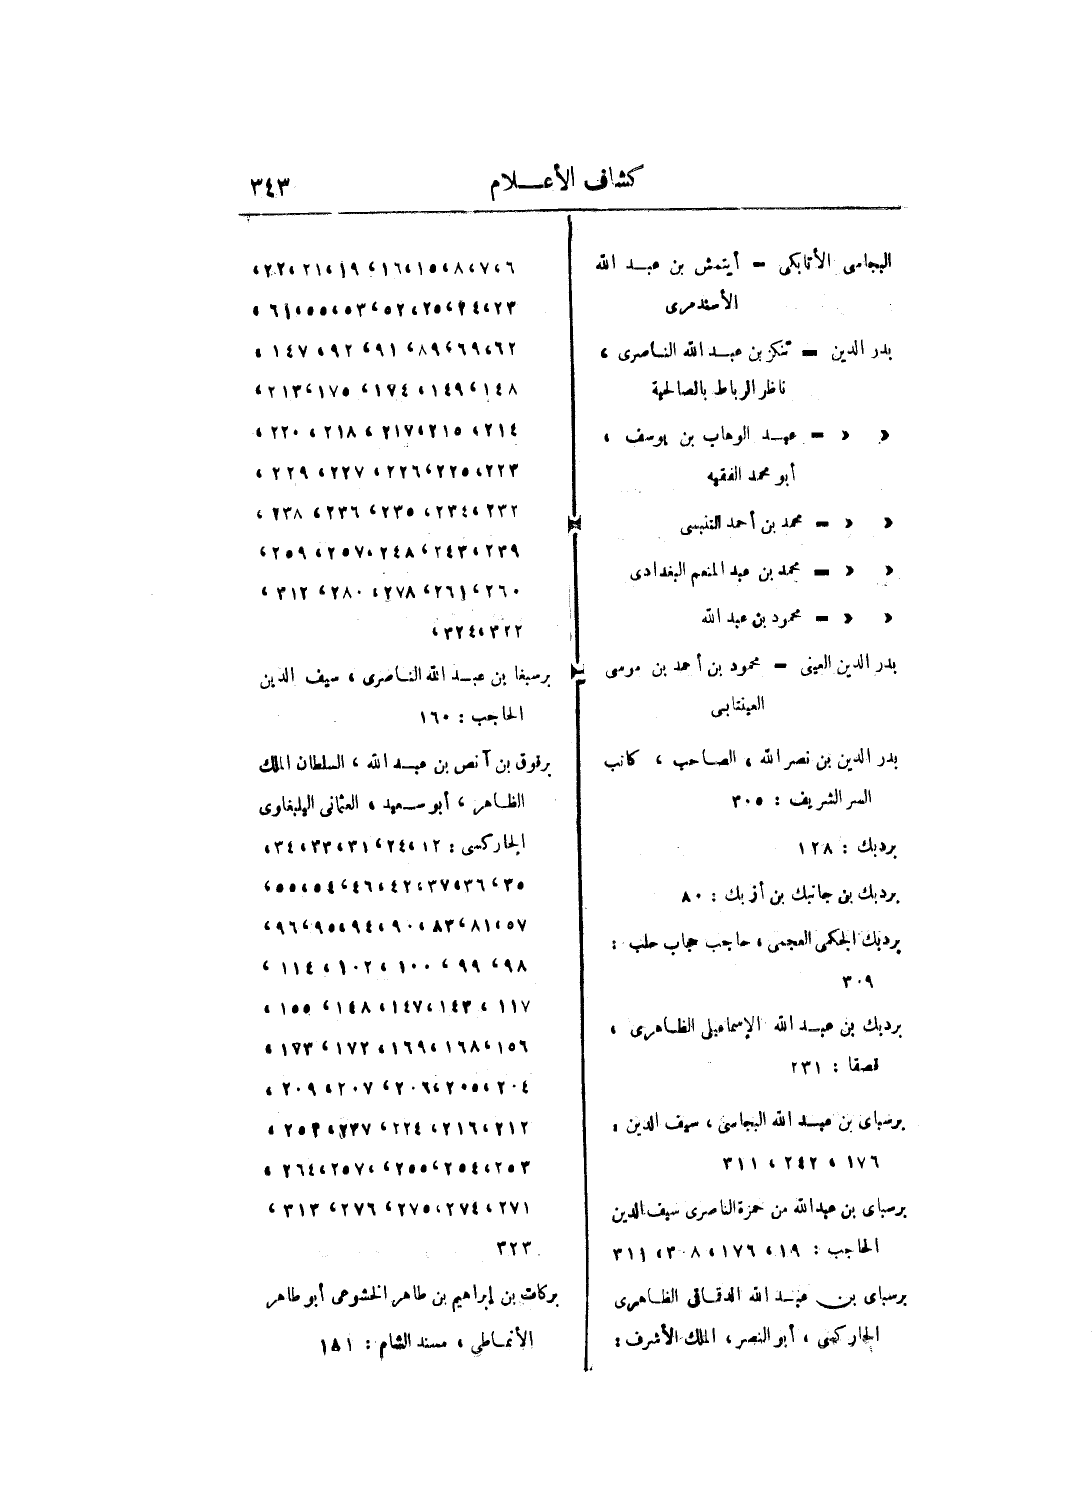 كشاف الأعلام
٣٤٣
البجاسى الأتابكى = أيتمش بن عبد الله
الأسندمرى
بدر الدين = تنكز بن عبد الله الناصرى ،
ناظر الرباط بالصالحية
» » = عبد الوهاب بن يوسف ،
أبو محمد الفقيه
» » = محمد بن أحمد التنيسى
» » = محمد بن عبد المنعم البغدادى
» » = محمود بن عبد الله
بدر الدين العينى = محمود بن أحمد بن موسى
العينتابى
بدر الدين بن نصر الله ، الصاحب ، كاتب
السر الشريف : ٣٠٥
بردبك : ١٢٨
بردبك بن جانبك بن أزبك : ٨٠
بردبك الجكمى العجمى ، حاجب حجاب حلب :
٣٠٩
بردبك بن عبد الله الإسماعيلى الظاهرى ،
قصقا : ٢٣١
برسباى بن عبد الله البجاسى ، سيف الدين :
١٧٦ ، ٢٤٢ ، ٣١١
برسباى بن عبدالله من حمزة الناصرى سيف الدين
الحاجب : ١٩، ١٧٦، ٣٠٨، ٣١١
برسباى بن عبد الله الدقماقى الظاهرى
الجاركسى ، أبو النصر ، الملك الأشرف :
٦، ٧، ٨، ١٥، ١٦، ١٩، ٢١، ٢٢،
٢٣، ٢٤، ٢٥، ٥٢، ٥٣، ٥٥، ٦١،
٦٢، ٦٩، ٨٩، ٩١، ٩٢، ١٤٧،
١٤٨، ١٤٩، ١٧٤، ١٧٥، ٢١٣،
٢١٤، ٢١٥، ٢١٧، ٢١٨، ٢٢٠،
٢٢٣، ٢٢٥، ٢٢٦، ٢٢٧، ٢٢٩،
٢٣٢، ٢٣٤، ٢٣٥، ٢٣٦، ٢٣٨،
٢٣٩، ٢٤٣، ٢٤٨، ٢٥٧، ٢٥٩،
٢٦٠، ٢٦١، ٢٧٨، ٢٨٠، ٣١٢،
٣٢٢، ٣٢٤،
برسبغا بن عبد الله الناصرى ، سيف الدين
الحاجب : ١٦٠
برقوق بن آنص بن عبد الله ، السلطان الملك
الظاهر ، أبو سعيد ، العثمانى اليلبغاوى
الجاركسى : ١٢، ٢٤، ٣١، ٣٣، ٣٤،
٣٥، ٣٦، ٣٧، ٤٢، ٤٦، ٥٤، ٥٥،
٥٧، ٨١، ٨٣، ٩٠، ٩٤، ٩٥، ٩٦،
٩٨، ٩٩، ١٠٠، ١٠٢، ١١٤،
١١٧، ١٤٣، ١٤٧، ١٤٨، ١٥٥،
١٥٦، ١٦٨، ١٦٩، ١٧٢، ١٧٣،
٢٠٤، ٢٠٥، ٢٠٦، ٢٠٧، ٢٠٩،
٢١٢، ٢١٦، ٢٢٤، ٢٣٧، ٢٥٢،
٢٥٣، ٢٥٤، ٢٥٥، ٢٥٧، ٢٦٤،
٢٧١، ٢٧٤، ٢٧٥، ٢٧٦، ٣١٣،
٣٢٣
بركات بن إبراهيم بن طاهر الخشوعى أبو طاهر
الأنماطى ، مسند الشام : ١٨١